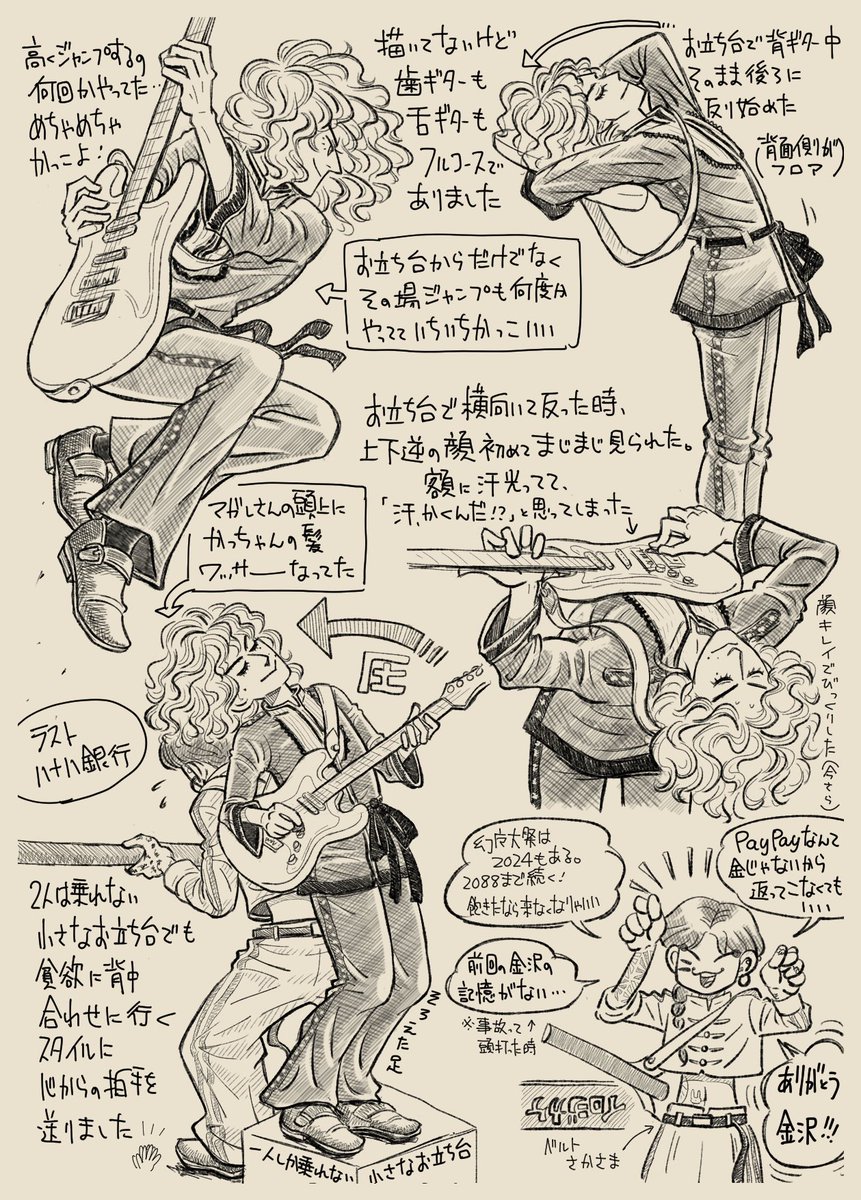 高くジャンプするの
何回かやってた…
めちゃめちゃ
かっこよ!
描いてないけど
歯ギターも
舌ギターも
フルコースで
ありました
お立ち台で背ギター中
そのまま後ろに
反り始めた
(背面側が
フロア)
お立ち台からだけでなく
その場ジャンプも何度も
やってていちいちかっこいい
お立ち台で横向いて反った時、
上下逆の顔初めてまじまじ見られた。
額に汗光ってて、
「汗、かくんだ!?」と思ってしまった
顔キレイでびっくりした(今さら)
マガレさんの頭上に
かっちゃんの髪
ワッサーなってた
圧
ラスト
ハナハ銀行
2人は乗れない
小さなお立ち台でも
貪欲に背中
合わせに行く
スタイルに
心からの拍手を
送りました
そろえた足
一人しか乗れない
小さなお立ち台
幻庭大祭は
2024もある。
2088まで続く!
飽きたなら来なくなりゃいい
PayPayなんて
金じゃないから
返ってこなくても
いいい
前回の金沢の
記憶がない…
※事故って
頭打た時
ベルト
さかさま
ありがとう
金沢!!!